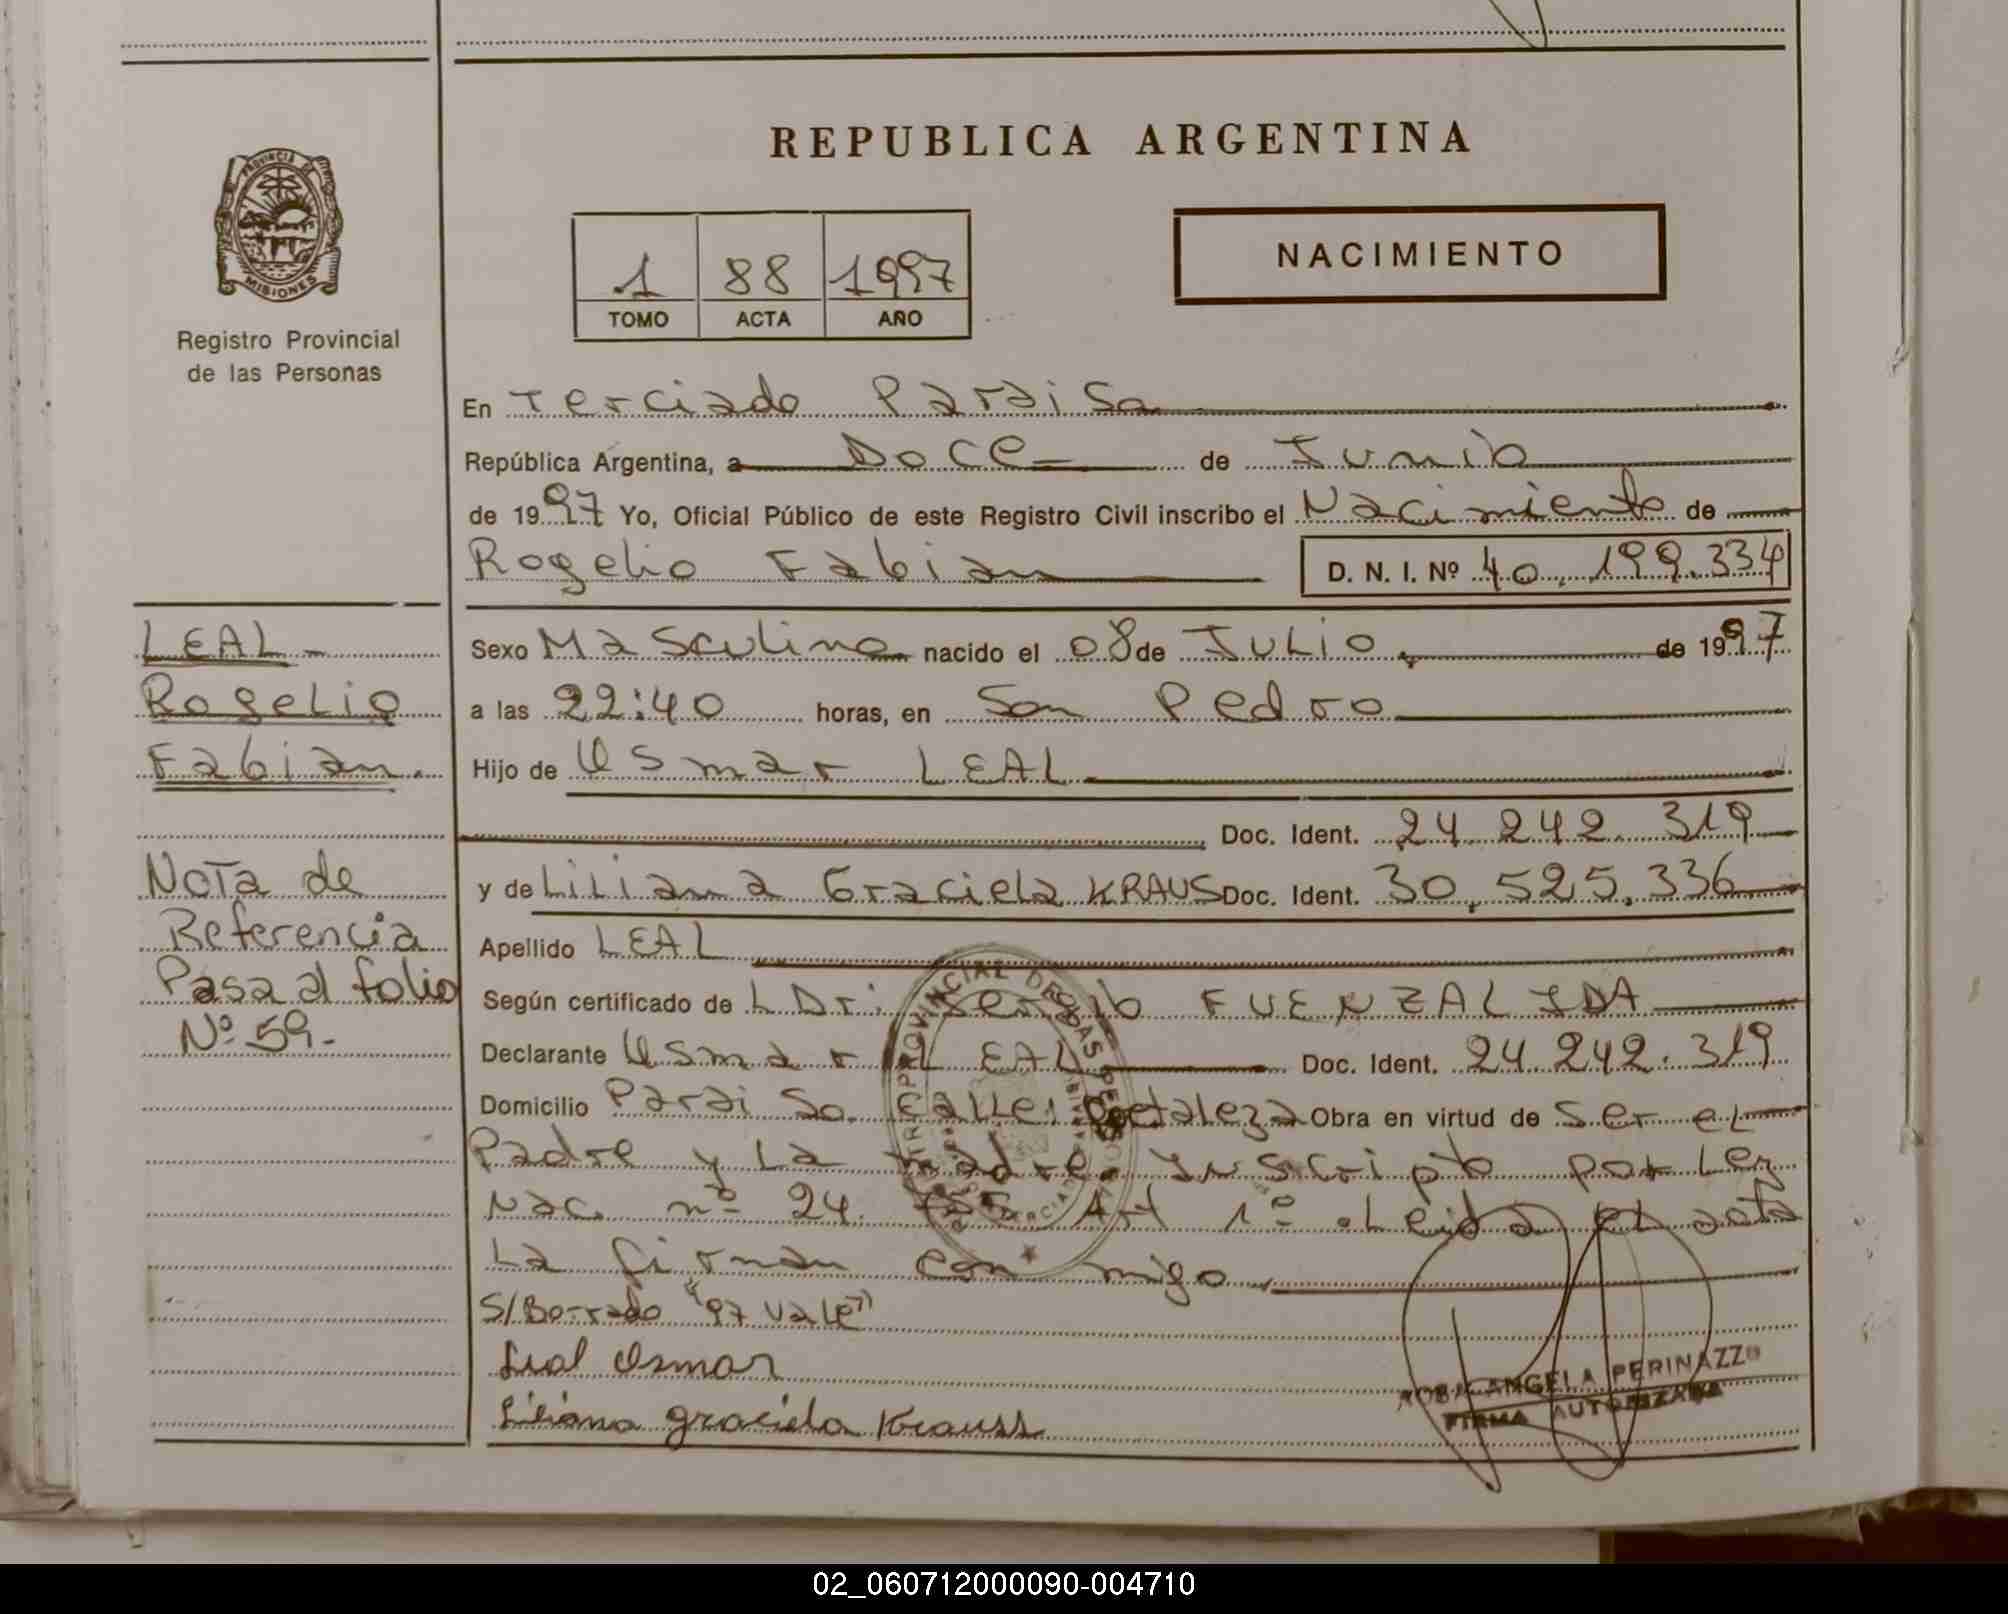 REPUBLICA ARGENTINA
PROVINCIA DE
MISIONES
Registro Provincial
de las Personas
1 88 1997
TOMO ACTA AÑO
NACIMIENTO
En Terciado Paraiso
República Argentina, a Doce de Junio
de 1997 Yo, Oficial Público de este Registro Civil inscribo el Nacimiento de
Rogelio Fabian D. N. I. Nº 40.199.334
LEAL
Rogelio
Fabian.
Nota de
Referencia
Pasa al folio
Nº 59.
Sexo Masculino nacido el 08 de JULIO, de 1997
a las 22:40 horas, en San Pedro
Hijo de Osmar LEAL
Doc. Ident. 24.242.319
y de Liliana Graciela KRAUS Doc. Ident. 30,525.336
Apellido LEAL
Según certificado de L Dr. Sergio FUENZALIDA
Declarante Osmar LEAL Doc. Ident. 24.242.319
Domicilio Paraiso. CALLE: Fortaleza Obra en virtud de Ser el
Padre y La madre. Inscripto por Ley
Nac. nº 24. 755 Art 1º. Leida el acta
La firman con migo,
S/Borrado "97 Vale"
Leal Osmar
Liliana Graciela Krauss
ANGELA PERINAZZO
FIRMA AUTORIZADA
02_060712000090-004710